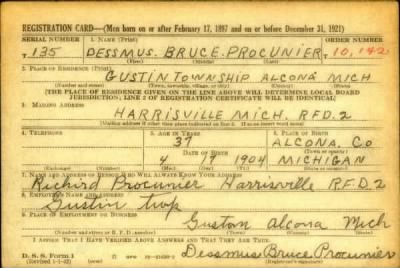 REGISTRATION CARD—(Men born on or after February 17, 1897 and on or before December 31, 1921)
SERIAL NUMBER 1. NAME (Print) ORDER NUMBER
T 135 DESSMUS. BRUCE. PROCUNIER T 10,142
(First) (Middle) (Last)
2. PLACE OF RESIDENCE (Print)
GUSTIN TOWNSHIP ALCONA MICH
(Number and street) (Town, township, village, or city) (County) (State)
[THE PLACE OF RESIDENCE GIVEN ON THE LINE ABOVE WILL DETERMINE LOCAL BOARD
JURISDICTION; LINE 2 OF REGISTRATION CERTIFICATE WILL BE IDENTICAL]
3. MAILING ADDRESS
HARRISVILLE MICH. RFD. 2
[Mailing address if other than place indicated on line 2. If same insert word same]
4. TELEPHONE 5. AGE IN YEARS 6. PLACE OF BIRTH
37 ALCONA CO
DATE OF BIRTH (Town or county)
4 17 1904 MICHIGAN
(Exchange) (Number) (Mo.) (Day) (Yr.) (State or country)
7. NAME AND ADDRESS OF PERSON WHO WILL ALWAYS KNOW YOUR ADDRESS
Richird Procunier Harrisville R.F.D. 2
8. EMPLOYER'S NAME AND ADDRESS
Gustin twp
9. PLACE OF EMPLOYMENT OR BUSINESS
Guston alcona Mich
(Number and street or R. F. D. number) (Town) (County) (State)
I AFFIRM THAT I HAVE VERIFIED ABOVE ANSWERS AND THAT THEY ARE TRUE.
D. S. S. Form 1
(Revised 1-1-42) (over) Dessmus Bruce Procunier